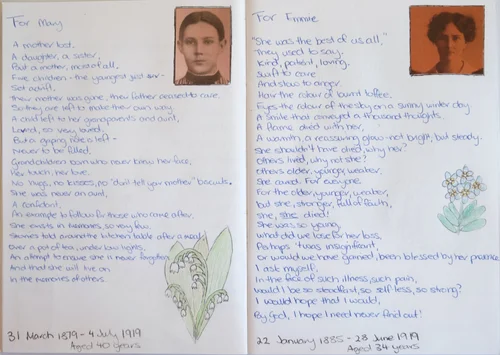 For Mary
A mother lost.
A daughter, a sister,
But a mother, most of all.
Five children - the youngest just
Set adrift.
Their mother was gone, their father ceased to care
So they are left to make their own way.
A child left to her grandparents and aunt,
Loved, so very loved.
But a gaping hole is left -
Never to be filled.
Grandchildren born who never knew her face,
Her touch, her love.
No hugs, no kisses, no "don't tell your mother" biscuits.
She was never an aunt,
A confidant,
An example to follow for those who came after.
She exists in memories, so very few.
Stories told around the kitchen table after a meal,
Over a pot of tea, under low lights,
An attempt to ensure she is never forgotten
And that she will live on
In the memories of others.
31 March 1879 - 4 July 1919
Aged 40 years
For Emmie
"She was the best of us all,"
They used to say.
Kind, patient, loving.
Swift to care
And slow to anger.
Hair the colour of burnt toffee.
Eyes the colour of the sky on a sunny winter day
A smile that conveyed a thousand thoughts.
A flame died with her,
A warmth, a reassuring glow - not bright, but steady.
She shouldn't have died, why her?
Others lived, why not she?
Others older, younger, weaker.
She cared. For everyone.
For the older, younger, weaker,
but she, stronger, full of faith,
She, she died!
She was so young,
what did we lose for her loss
Perhaps 'twas insignificant,
Or would we have gained, been blessed by her presence
I ask myself.
In the face of such illness, such pain,
would I be so steadfast, so selfless, so strong?
I would hope that I would,
By God, I hope I need never find out!
22 January 1885 - 28 June 1919
Aged 34 years